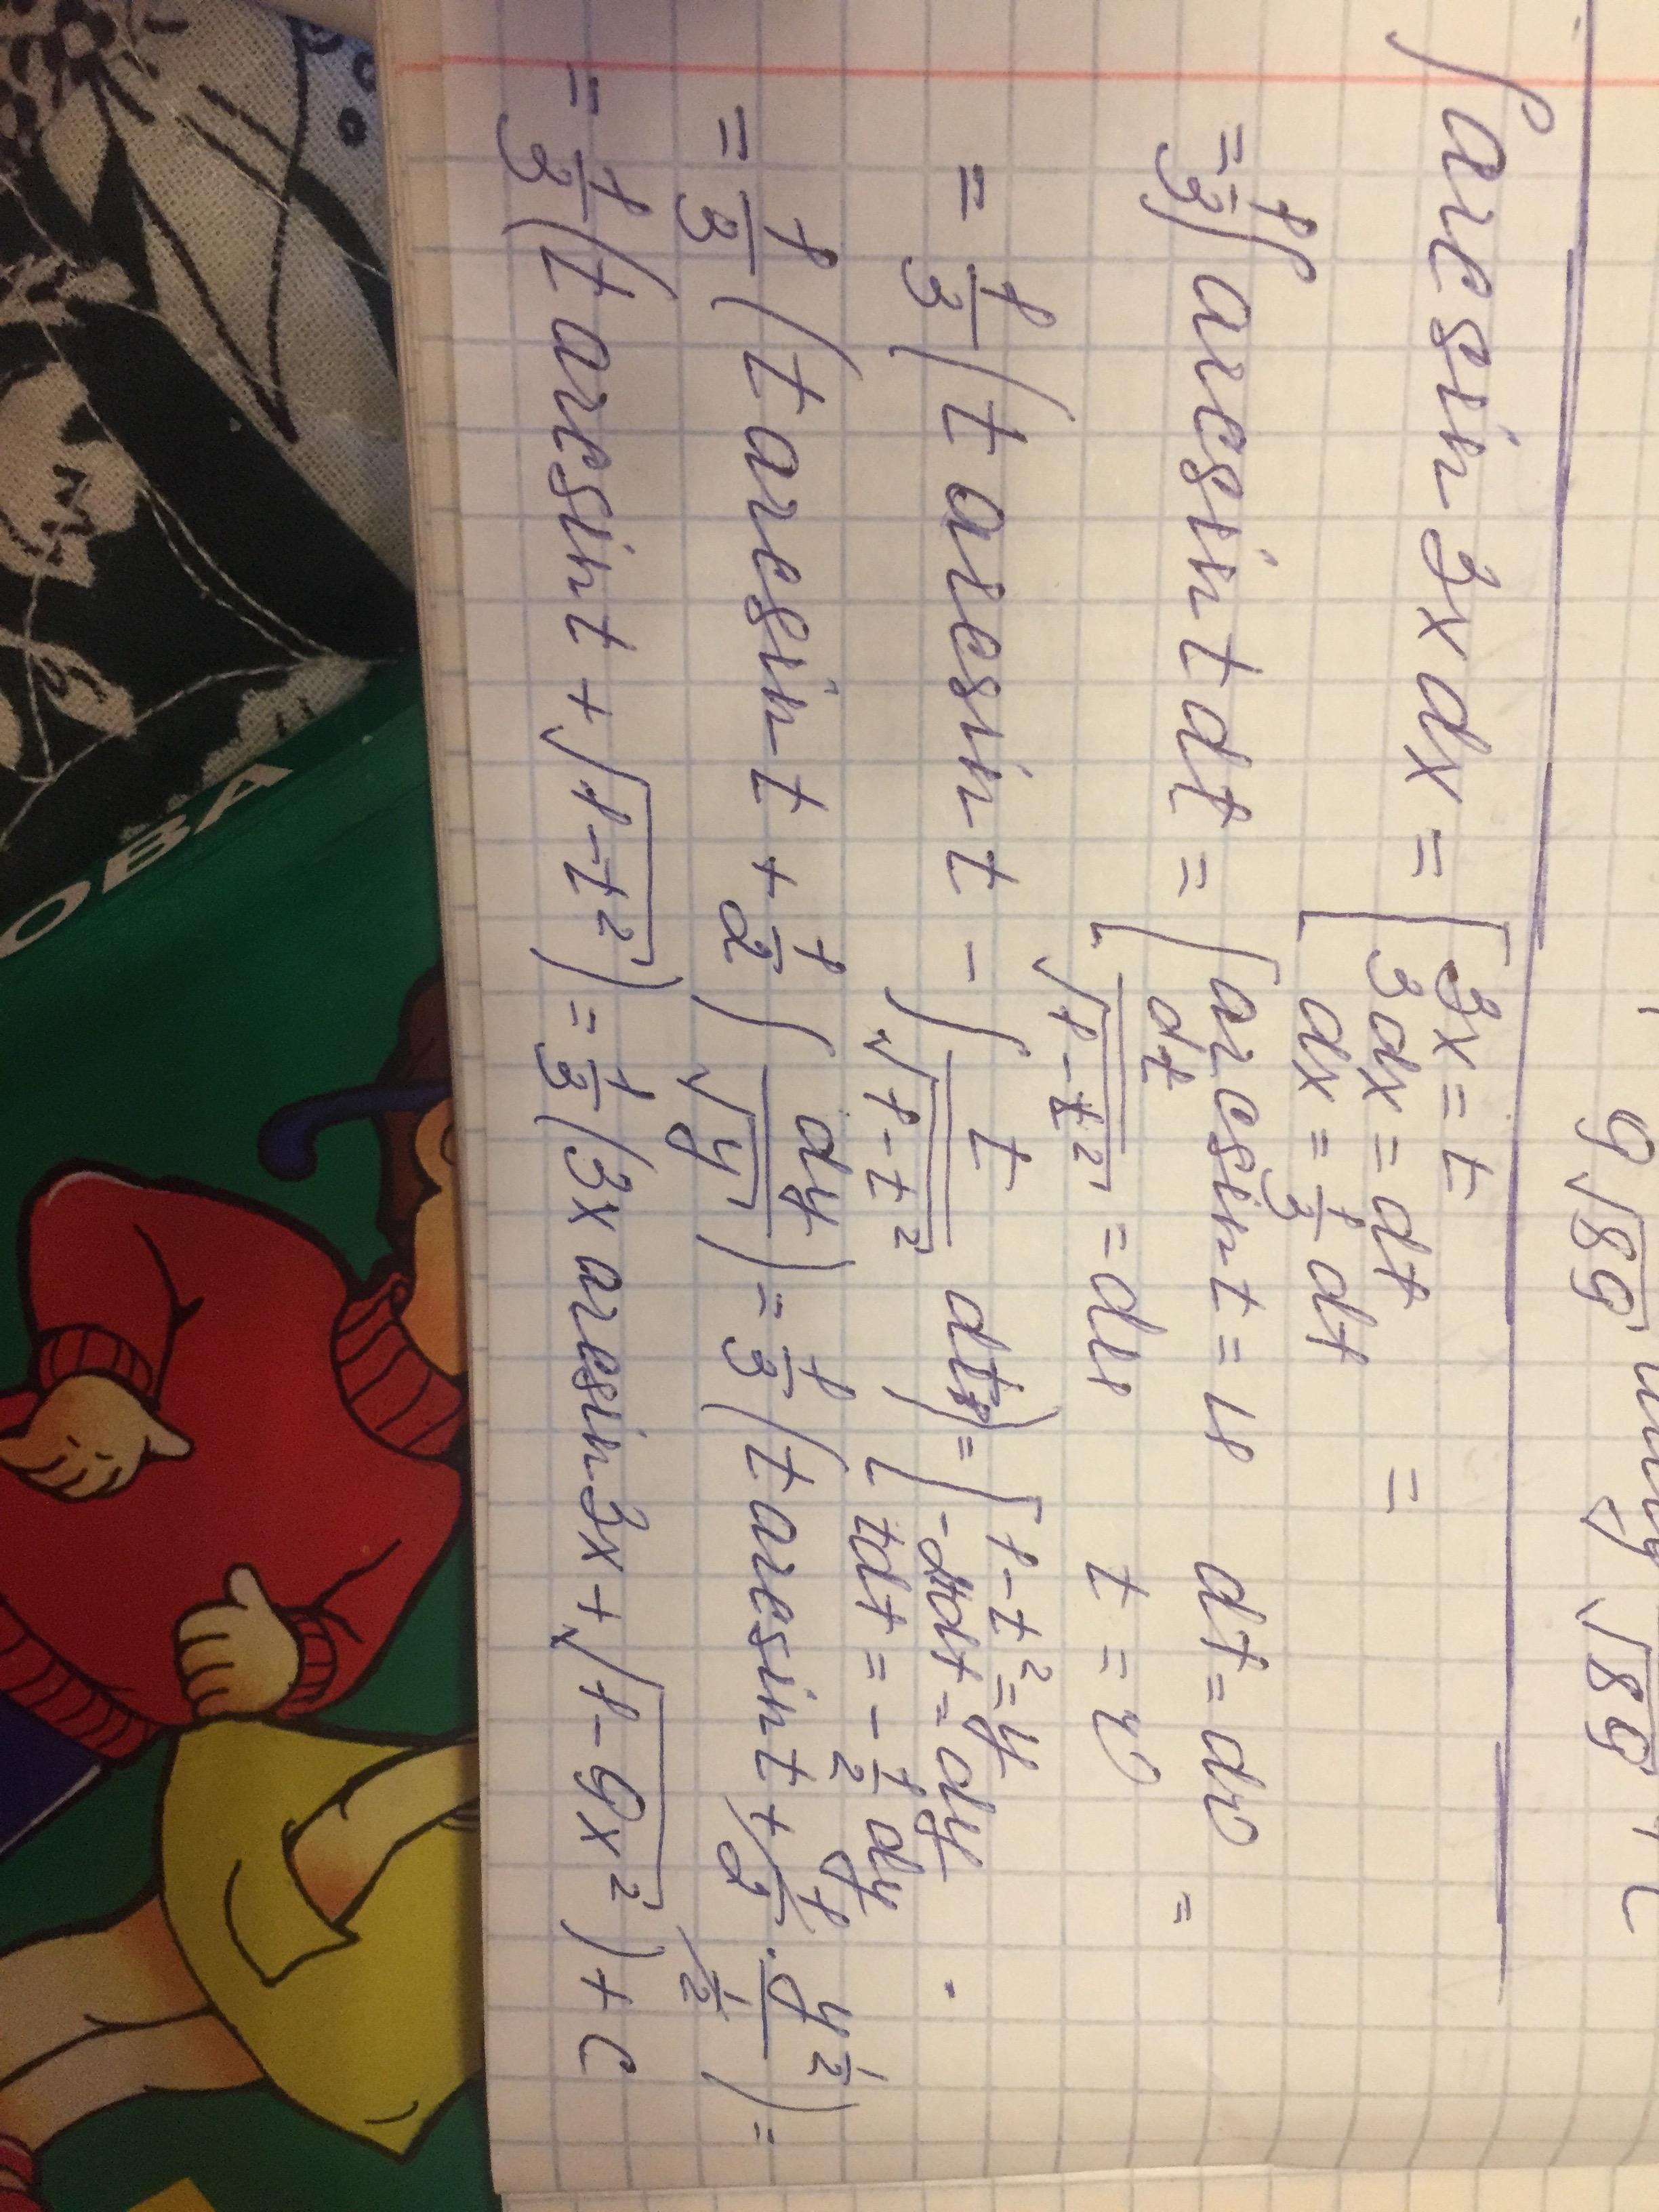 9√89 ... √89 + C
∫ arcsin 3x dx = [ 3x = t
3 dx = dt =
dx = 1/3 dt
= 1/3 ∫ arcsin t dt = [ arcsin t = u dt = dv =
dt/√(1-t²) = du t = v
= 1/3 ( t arcsin t - ∫ t/√(1-t²) dt ) = [ 1-t² = y
-2tdt = dy
tdt = -1/2 dy
= 1/3 ( t arcsin t + 1/2 ∫ dy/√y ) = 1/3 ( t arcsin t + 1/2 · y^(1/2)/(1/2) ) =
= 1/3 ( t arcsin t + √(1-t²) ) = 1/3 ( 3x arcsin 3x + √(1-9x²) ) + C
ОВА